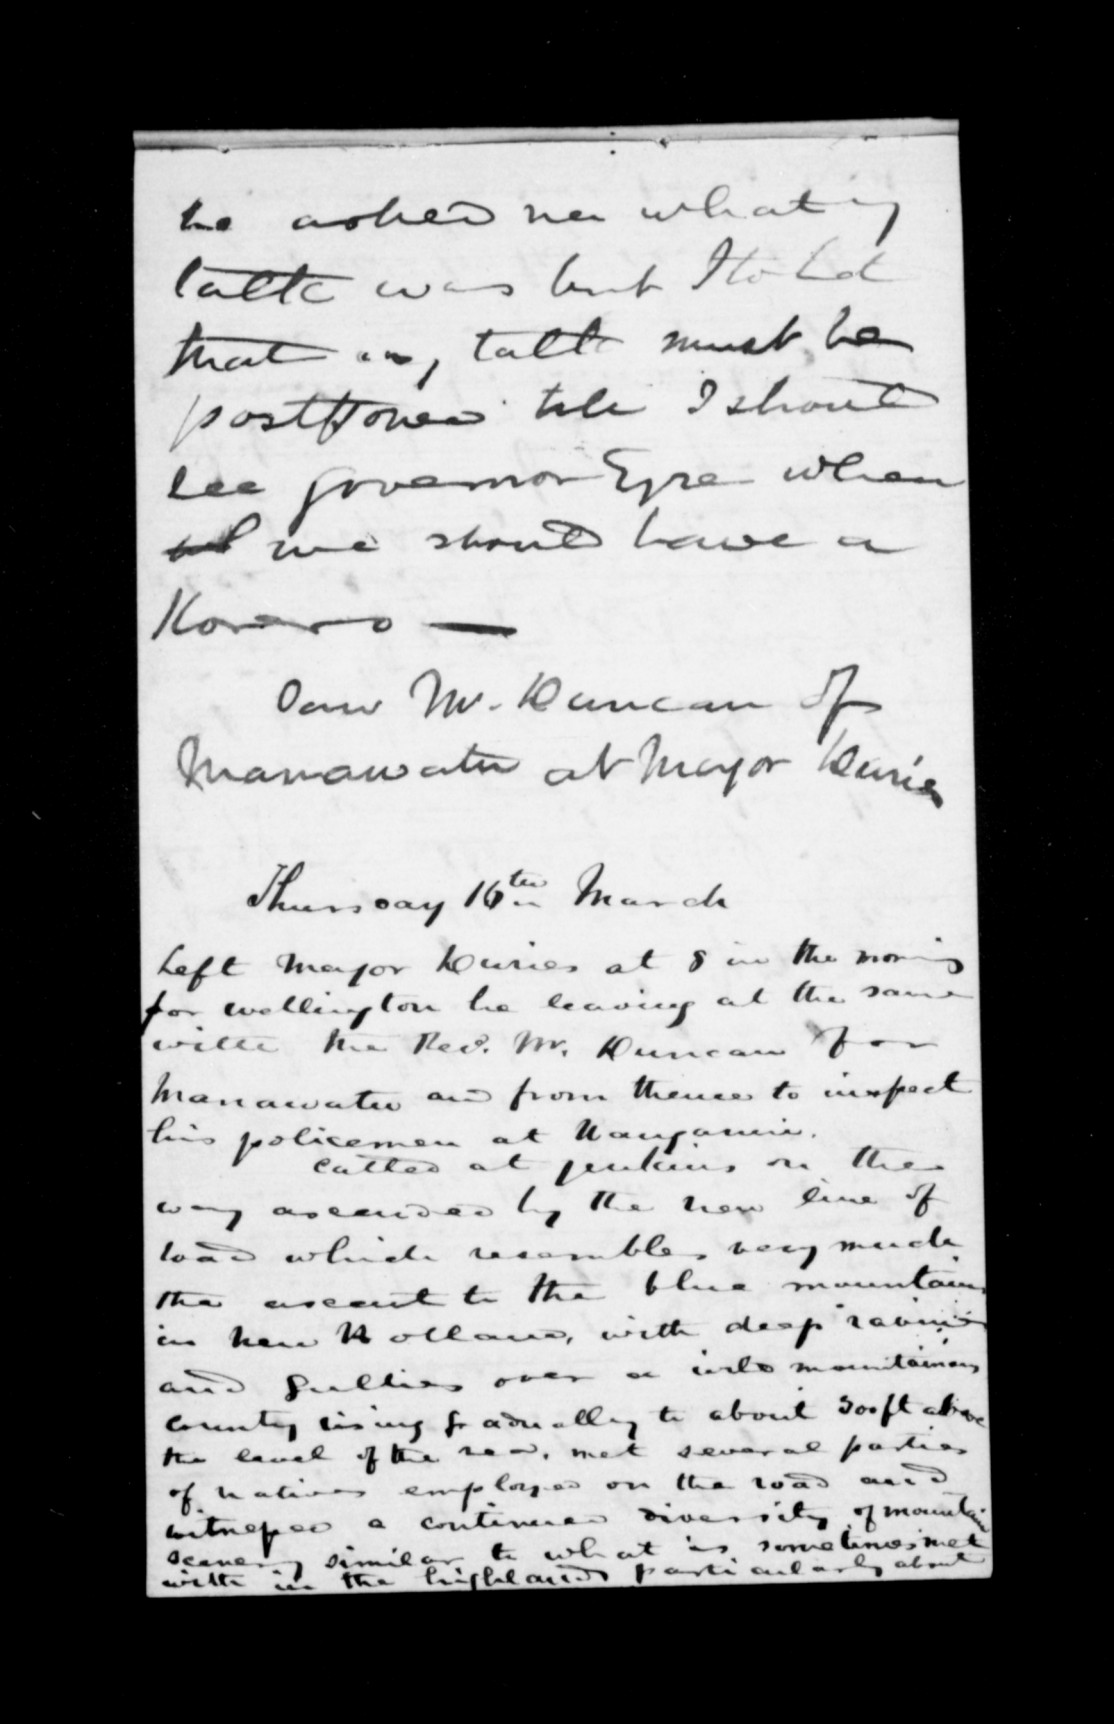 he asked me what my
talk was but I told
that my talk must be
postponed till I should
see governor Eyre when
we should have a
Korero —
Saw Mr. Duncan of
Manawatu at Major Duries
Thursday 16th March
Left Major Duries at 8 in the morning
for wellington he leaving at the same
with the Red. Mr. Duncan for
Manawatu and from thence to inspect
his policemen at Wanganui.
Called at Jenkins on the
way ascended by the new line of
road which resembles very much
the ascent to the blue mountains
in New Holland, with deep ravines
and gullies over a wild mountainous
county rising gradually to about 300ft above
the level of the sea. met several parties
of natives employed on the road and
witnessed a continued diversity of mountain
scenery similar to what is sometimes met
with in the highlands particularly about